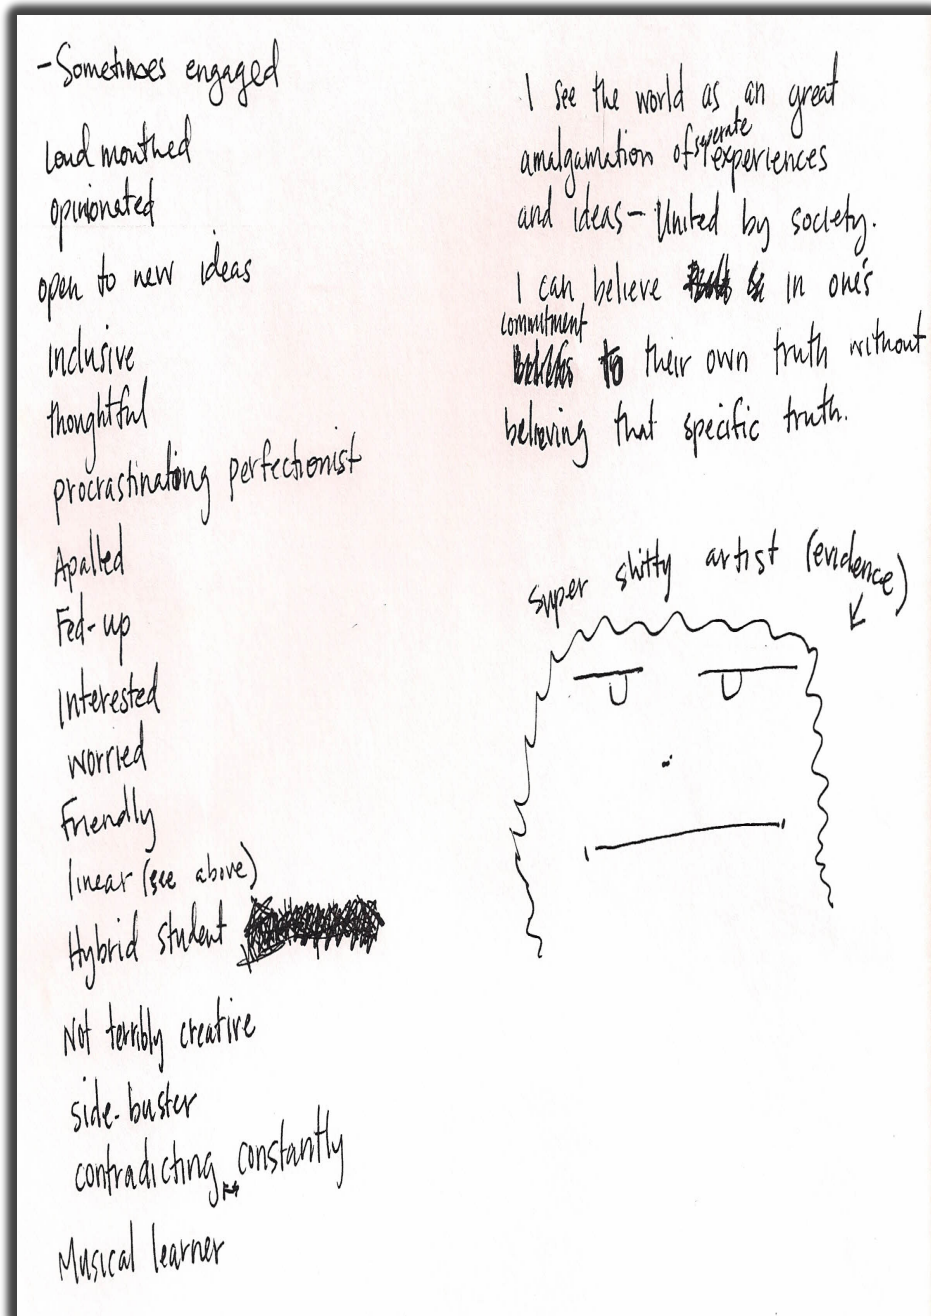 -Sometimes engaged
Loud mouthed
opinionated
open to new ideas
Inclusive
thoughtful
procrastinating perfectionist
Apalled
Fed-up
Interested
worried
Friendly
linear (see above)
Hybrid student
Not terribly creative
side-buster
contradicting constantly
Musical learner
I see the world as an great
amalgamation of seperate experiences
and ideas - United by society.
I can believe in one's
commitment
to their own truth without
believing that specific truth.
super shitty artist (evidence)